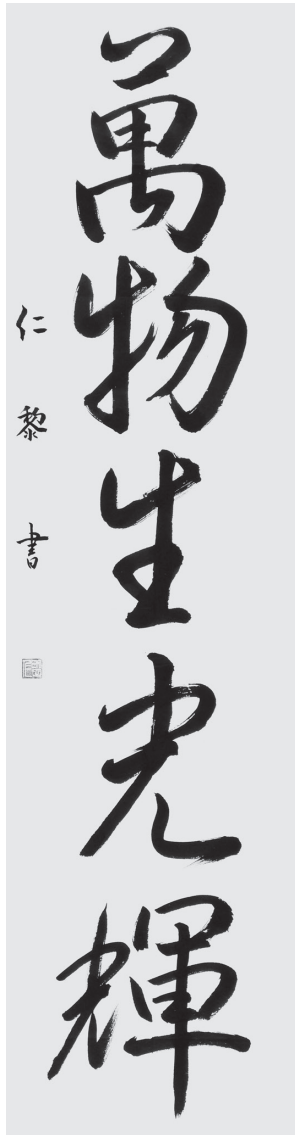 萬物生光輝
仁黎書